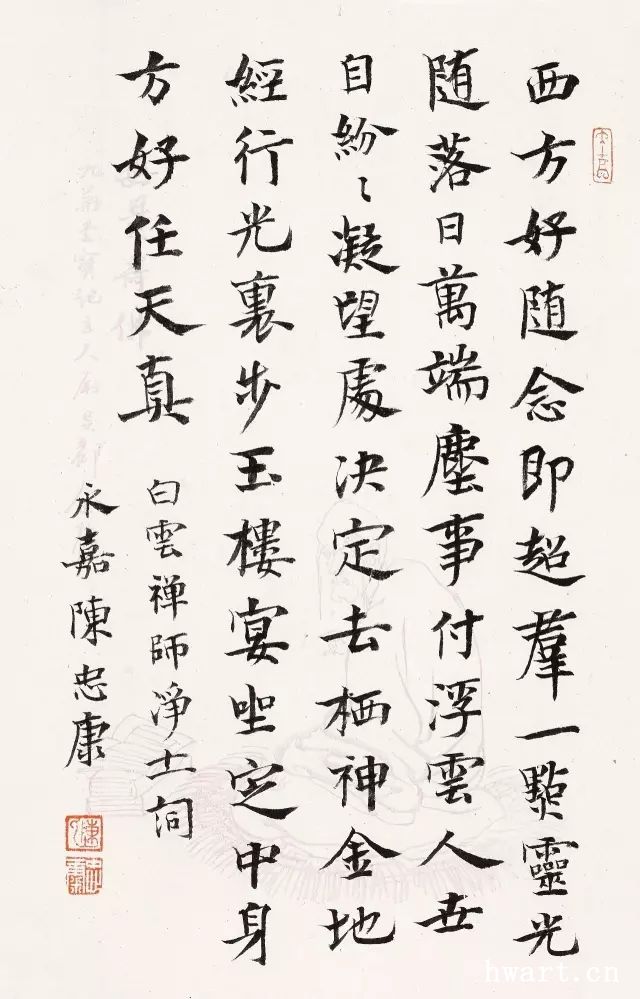 西方好随念即超羣一點靈光
随落日萬端塵事付浮雲人世
自紛〻凝望處決定去栖神金地
經行光裏步玉樓宴坐定中身
方好任天真
白雲禅師淨土詞
永嘉陳忠康
hwart.cn